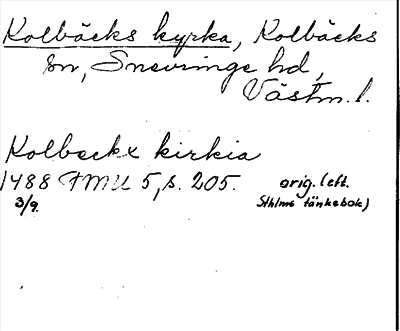 Kolbäcks kyrka, Kolbäcks
sn, Snevringe hd,
Västm. l.
Kolbeckx kirkia
1488 FMU 5, s. 205. orig. (eft.
3/9. Sthlms tänkebok)